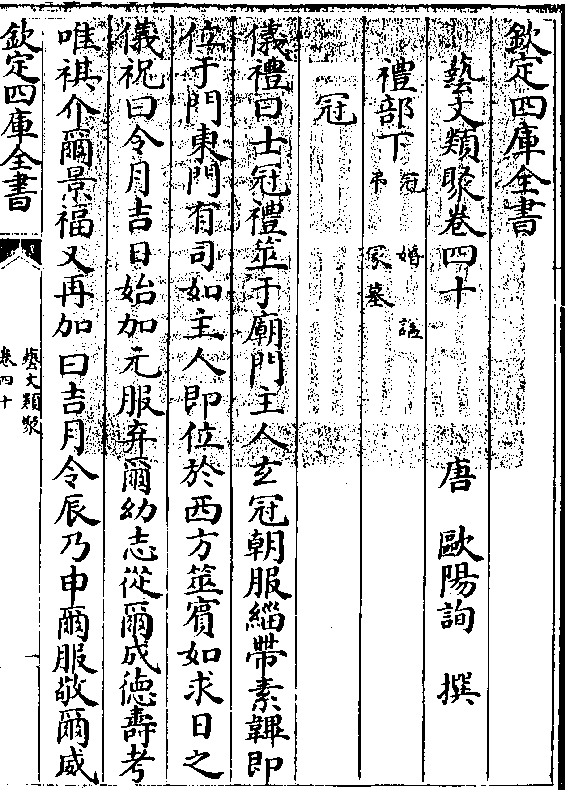 欽定四庫全書
藝文類聚卷四十
唐 歐陽詢 撰
禮部下 冠 婚 諡
弔 冢墓
冠
儀禮曰士冠禮筮于廟門主人玄冠朝服緇帶素韠即
位于門東門有司如主人即位於西方筮賓如求日之
儀祝曰令月吉日始加元服弃爾幼志從爾成德壽考
唯祺介爾景福又再加曰吉月令辰乃申爾服敬爾威
欽定四庫全書
藝文類聚
卷四十
一